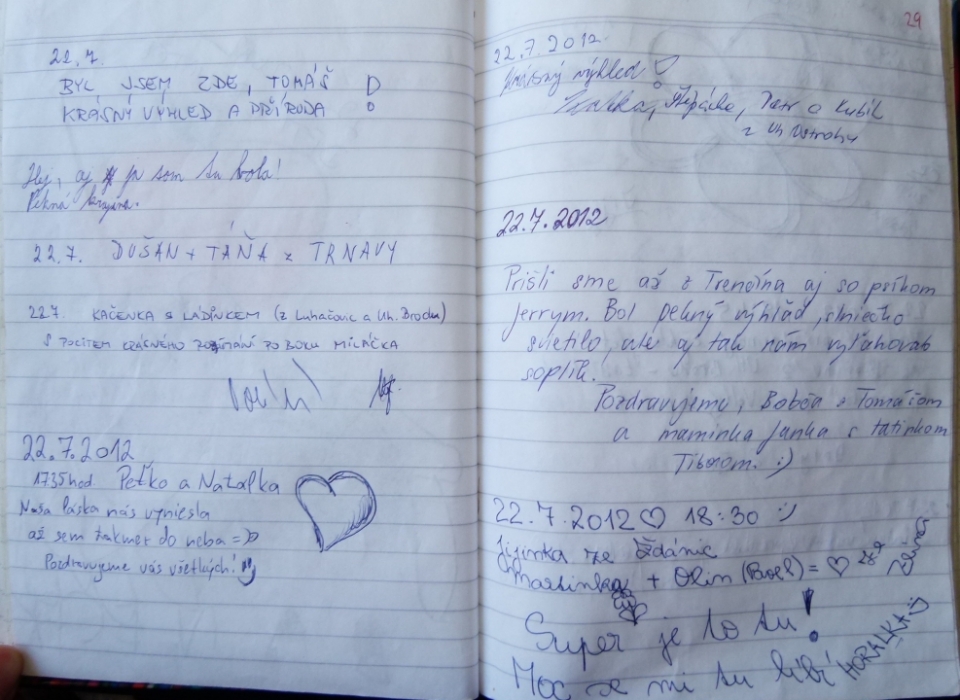 22.7.
BYL JSEM ZDE, TOMÁŠ !
KRÁSNÝ VÝHLED A PŘÍRODA
Hej, aj ja som tu bola!
Pekná krajina.
22.7. DUŠAN + TÁŇA z TRNAVY
22.7. KAČENKA S LÁĎÍNKEM (z Luhačovic a Uh. Brodu)
S POCITEM KRÁSNÉHO PO BOKU MILÁČKA
22.7.2012
1735hod Peťko a Natalka
Naša láska nás vyniesla
až sem takmer do neba =)
Pozdravujeme vás všetkých! :)
29
22.7.2012
krásný výhled!
Štěpánka, Petr a Kubík
z Uh Ostrohu
22.7.2012
Prišli sme až z Trenčína aj so psíkom
Jerrym. Bol pekný výhľad, slniečko
svietilo, ale aj tak nám vyťahovab
soplík.
Pozdravujemu, Boboa s Tomáčom
a maminka Janka s tatinkom
Tiborom. :)
22.7.2012 ♡ 18:30 :)
Jiřinka ze Ždánic
Martinka + Olin (Pavel) = ♡ ze
Super je to tu!
Moc se mi tu líbí HORALKA :)